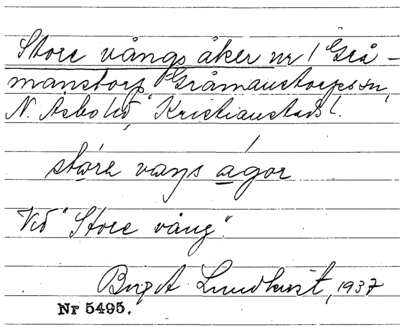 Store vångs åker nr 1 Grå-
manstorp, Gråmanstorps sn,
N. Åsbo hd, Kristianstads l.
störe vaŋs ágor
Vid "Store vång".
Birgit Lundkvist, 1937
Nr 5495.